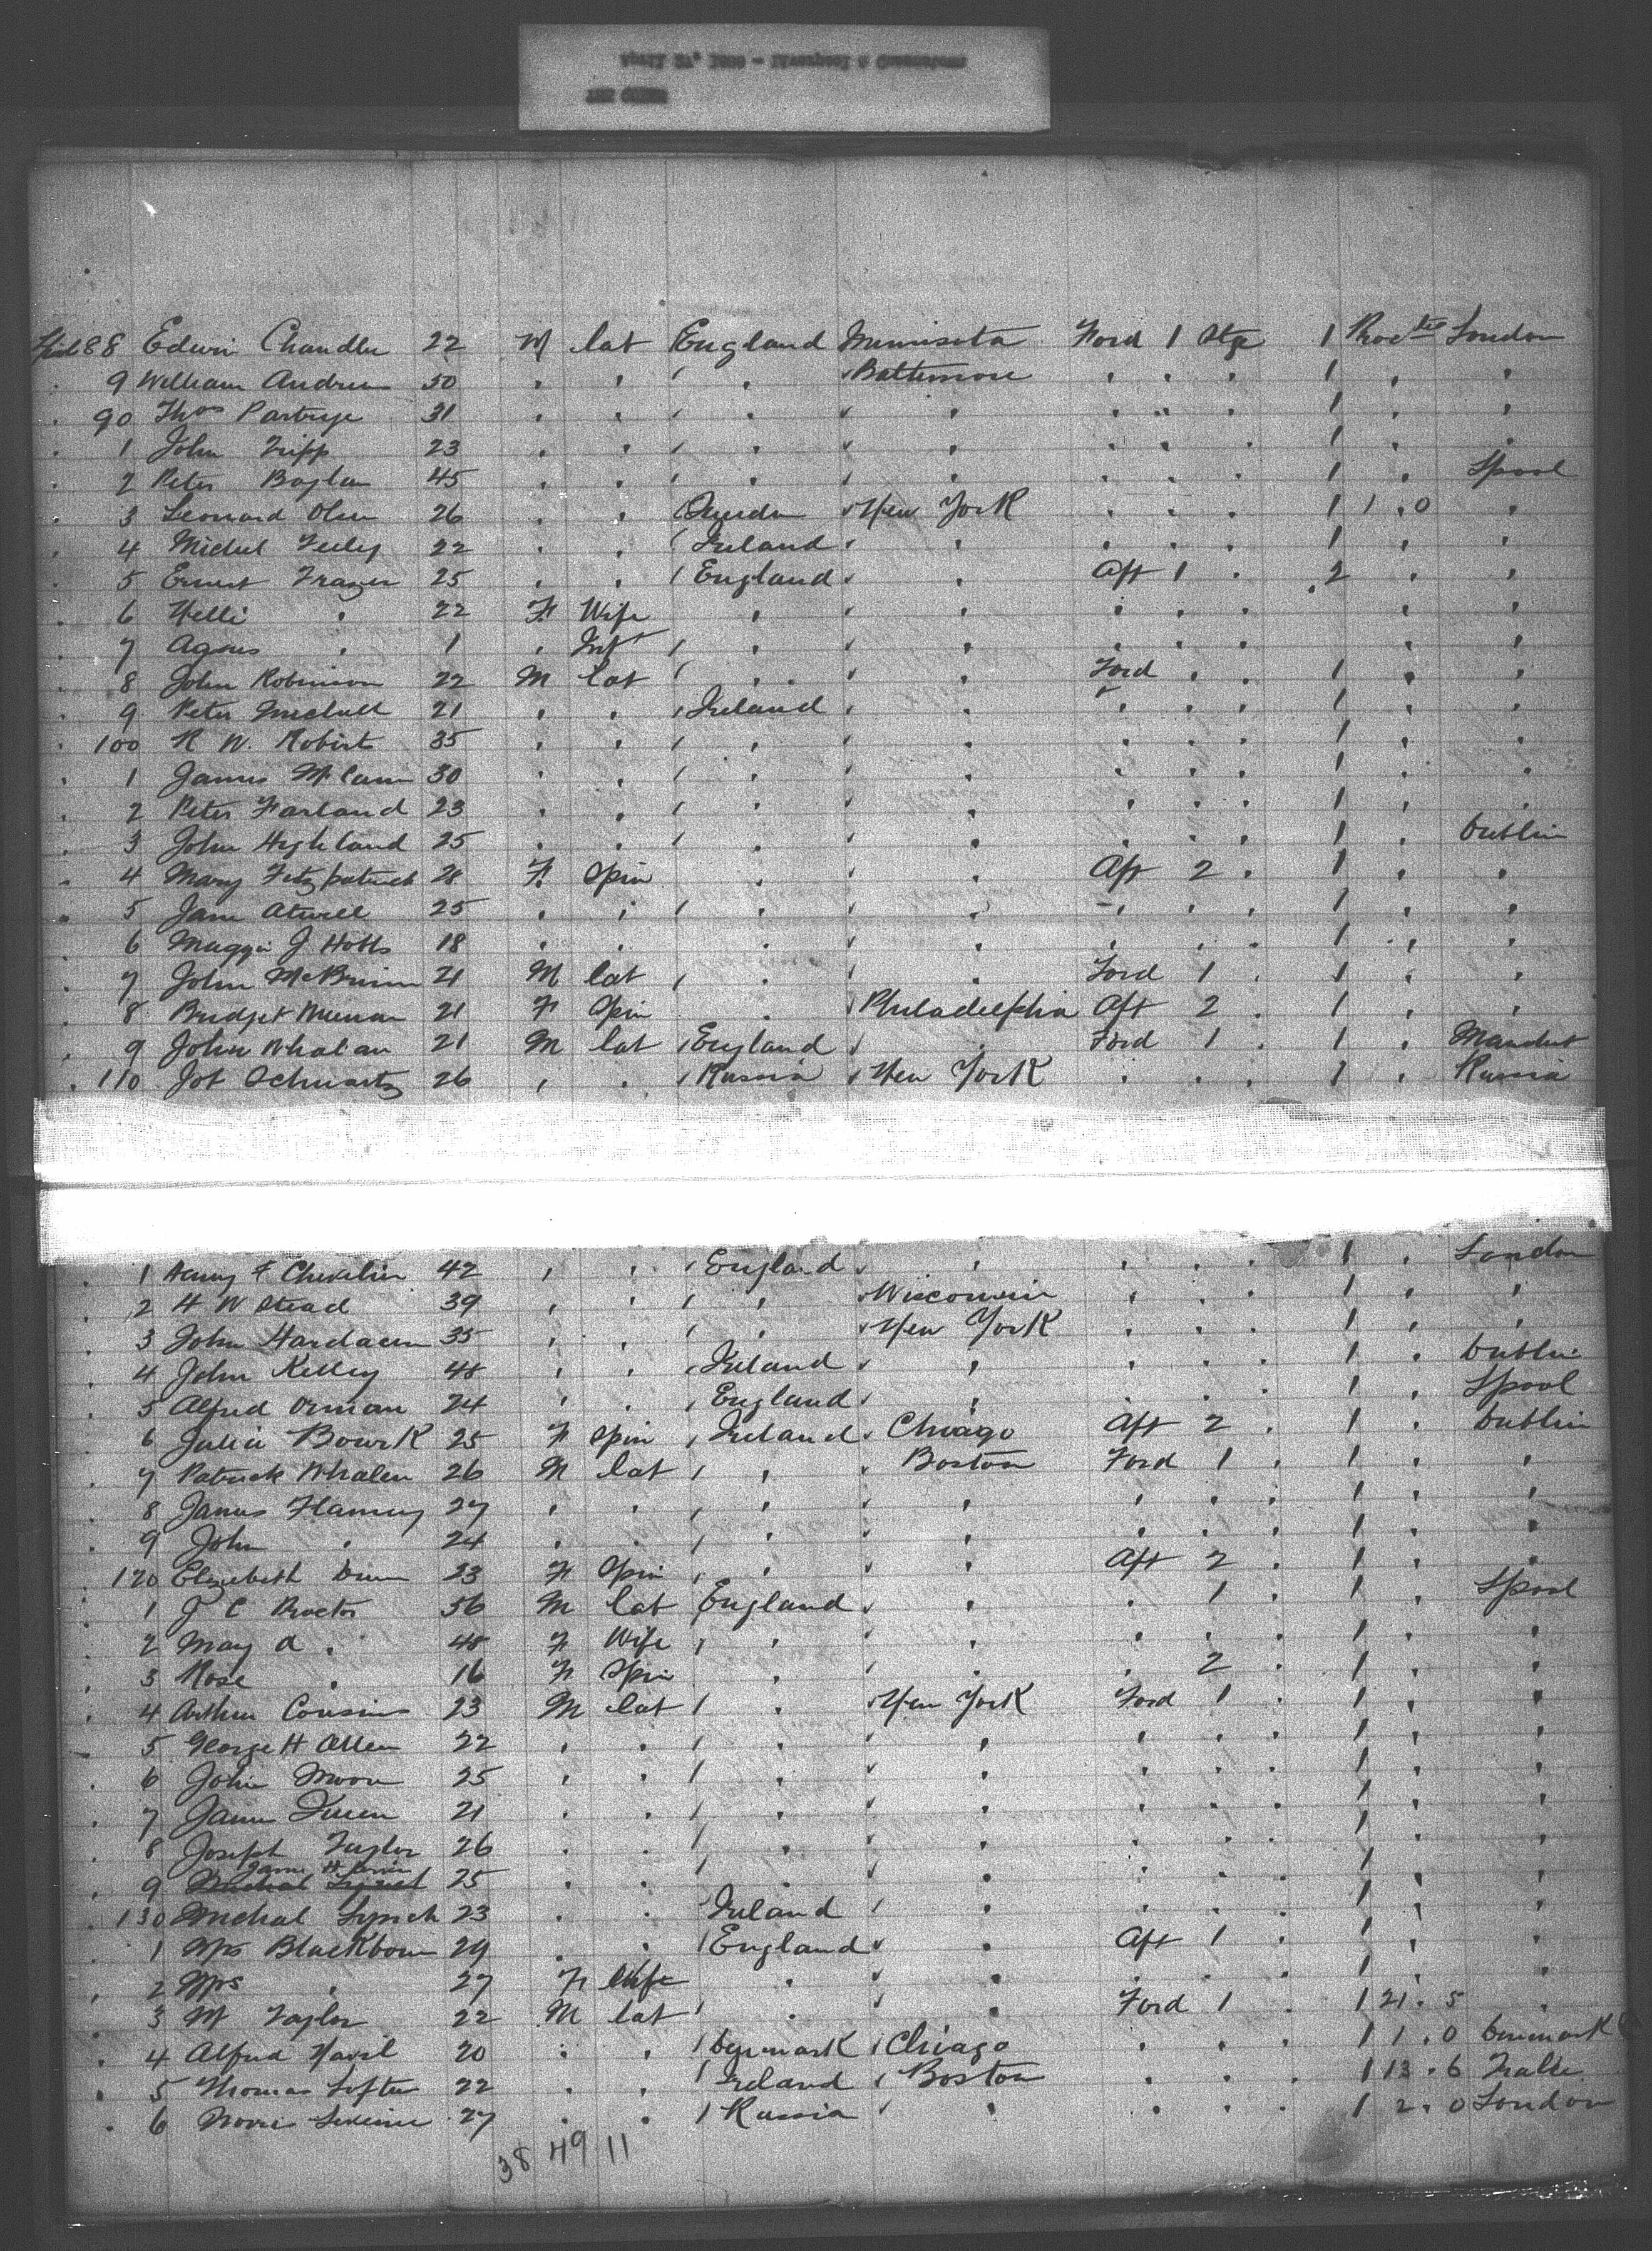 88 Edwin Chandler 22 M lab England Minnisota Ford 1 Stge 1 London
9 William Andrew 50 " " " " Baltimore " " " 1 " "
90 Thos Partrige 31 " " " " " " " " 1 " "
1 John Tripp 23 " " " " " " " " 1 " "
2 Peter Boylan 45 " " " " " " " " 1 " Lpool
3 Leonard Olsen 26 " " New York " " " 1 1 . 0 "
4 Michel Feeley 22 " " Ireland " " " " 1 " "
5 Ernest Frazer 25 " " England " Aft 1 " 2 " "
6 Nelli " 22 F Wife " " " " " " "
7 Agnes " 1 " Inft " " " " " " "
8 John Robinson 22 M lab " " Ford " " 1 " "
9 Peter Mitchell 21 " " Ireland " " " " 1 " "
100 R W. Roberts 35 " " " " " " " 1 " "
1 James McCann 30 " " " " " " " 1 " "
2 Peter Farland 23 " " " " " " " 1 " "
3 John Highland 25 " " " " " " " 1 " Dublin
4 Mary Fitzpatrick 28 F. Spin " " Aft 2 " 1 " "
5 Jane Atwell 25 " " " " " " " 1 " "
6 Maggie J Hobbs 18 " " " " " " " 1 " "
7 John McBrinn 21 M lab " " Ford 1 " 1 " "
8 Bridget 21 F Spin " Philadelphia Aft 2 " 1 " "
9 John Whalan 21 M lab England " Ford 1 " 1 "
110 Job Schwartz 26 " " Russia New York " " " 1 " Russia
1 Henry F Chevelier 42 " " England " " " " 1 " London
2 H W Stead 39 " " " Wisconsin " " " 1 " "
3 John 35 " " " New York " " " 1 " "
4 John Kelley 48 " " Ireland " " " " 1 " Dublin
5 Alfred Orman 24 " " England " " " " 1 " Lpool
6 Julia Bourk 25 F Spin Ireland Chicago Aft 2 " 1 " Dublin
7 Patrick Whalen 26 M lab " Boston Ford 1 " 1 " "
8 James 27 " " " " " " " 1 " "
9 John " 24 " " " " " " " 1 " "
120 Elizebeth Dunn 23 F Spin " " Aft 2 " 1 " "
1 J C Proctor 56 M lab England " " 1 " 1 " Lpool
2 Mary A " 48 F Wife " " " " " 1 " "
3 Rose " 16 F Spin " " " 2 " 1 " "
4 Arthur Cousins 23 M lab " New York Ford 1 " 1 " "
5 George H Allen 22 " " " " " " " 1 " "
6 John Moore 25 " " " " " " " 1 " "
7 James 21 " " " " " " " 1 " "
8 Joseph Taylor 26 " " " " " " " 1 " "
James H
9 Michal Lynch 25 " " " " " " " 1 " "
130 Michal Lynch 23 " " Ireland " " " " 1 " "
1 Blackbourn 29 " " England " Aft 1 " 1 " "
2 Mrs " 27 F Wife " " " " " 1 " "
3 M Taylor 22 M lab " " Ford 1 " 1 21 . 5 "
4 Alfred 20 " " Denmark Chicago " " " 1 1 . 0 Denmark
5 Thomas Loftus 22 " " Ireland Boston " " " 1 13 . 6
6 27 " " Russia " " " " 1 2 . 0 London
38 49 11